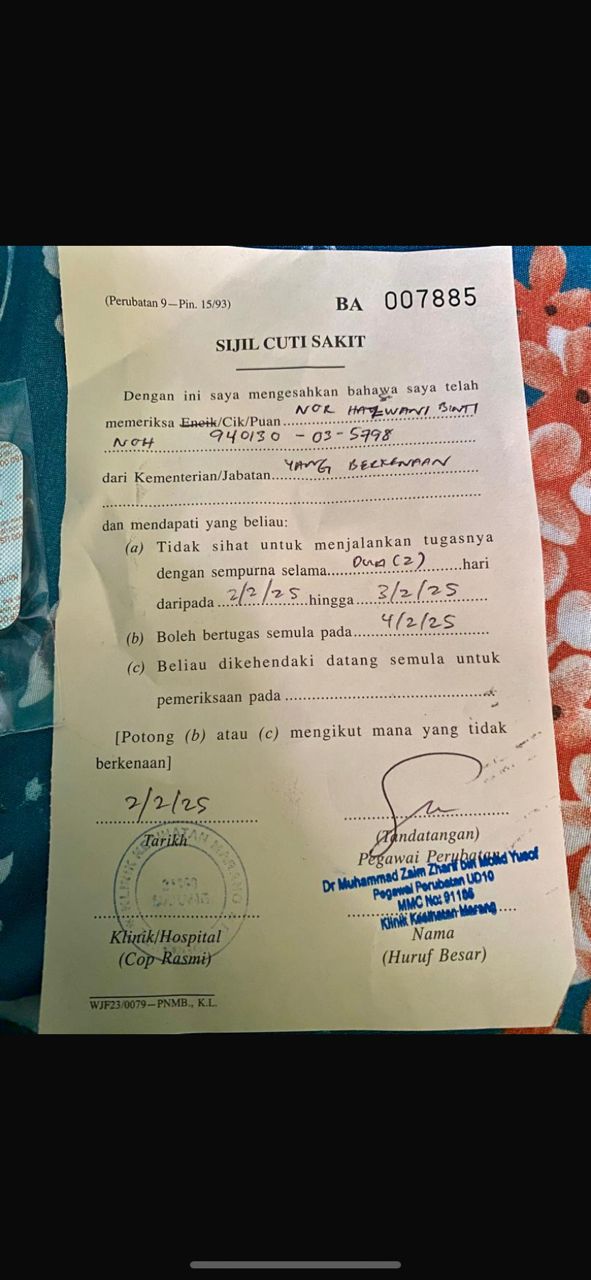 (Perubatan 9—Pin. 15/93)
BA 007885
SIJIL CUTI SAKIT
Dengan ini saya mengesahkan bahawa saya telah
memeriksa Encik/Cik/Puan NOR HAZWANI BINTI
NOH 940130 - 03 - 5798
dari Kementerian/Jabatan YANG BERKENAAN
dan mendapati yang beliau:
(a) Tidak sihat untuk menjalankan tugasnya
dengan sempurna selama DUA (2) hari
daripada 2/2/25 hingga 3/2/25
(b) Boleh bertugas semula pada 4/2/25
(c) Beliau dikehendaki datang semula untuk
pemeriksaan pada
[Potong (b) atau (c) mengikut mana yang tidak
berkenaan]
2/2/25
Tarikh
(Tandatangan)
Pegawai Perubatan
Dr Muhammad Zaim Zharif bin Mohd Yusof
Pegawai Perubatan UD10
MMC No: 91186
Klinik Kesihatan Marang
KLINIK KESIHATAN MARANG
Klinik/Hospital
(Cop Rasmi)
Nama
(Huruf Besar)
WJF23/0079—PNMB., K.L.